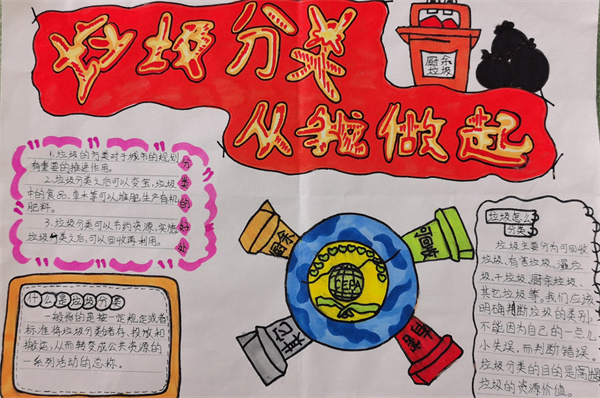 垃圾分类
从我做起
厨余
垃圾
1.垃圾的分类对于城市的规划
有重要的推进作用。
2.垃圾分类之后可以变宝,垃圾
中的食品、草木等可以堆肥,生产有机
肥料。
3.垃圾分类可以节约资源,实施
垃圾分类之后,可以回收再利用。
分类的好处
什么是垃圾分类
一般指的是按一定规定或者
标准将垃圾分类储存、投放和
搬运,从而转变成公共资源的
一系列活动的总称。
厨余
可回收
EEPA
其它
有害
垃圾怎么
分类
垃圾主要分为可回收
垃圾、有害垃圾、湿垃
圾、干垃圾、厨余垃圾、
其它垃圾等。我们应该
明确判断垃圾的类别,
不能因为自己的一点儿
小失误,而判断错误。
垃圾分类的目的是高提
垃圾的资源价值。